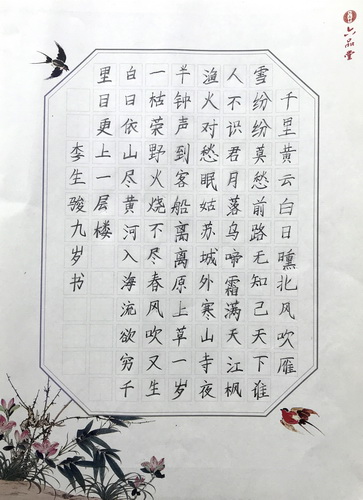 六品堂
千里黄云白日曛北风吹雁
雪纷纷莫愁前路无知己天下谁
人不识君月落乌啼霜满天江枫
渔火对愁眠姑苏城外寒山寺夜
半钟声到客船离离原上草一岁
一枯荣野火烧不尽春风吹又生
白日依山尽黄河入海流欲穷千
里目更上一层楼
李生骏九岁书